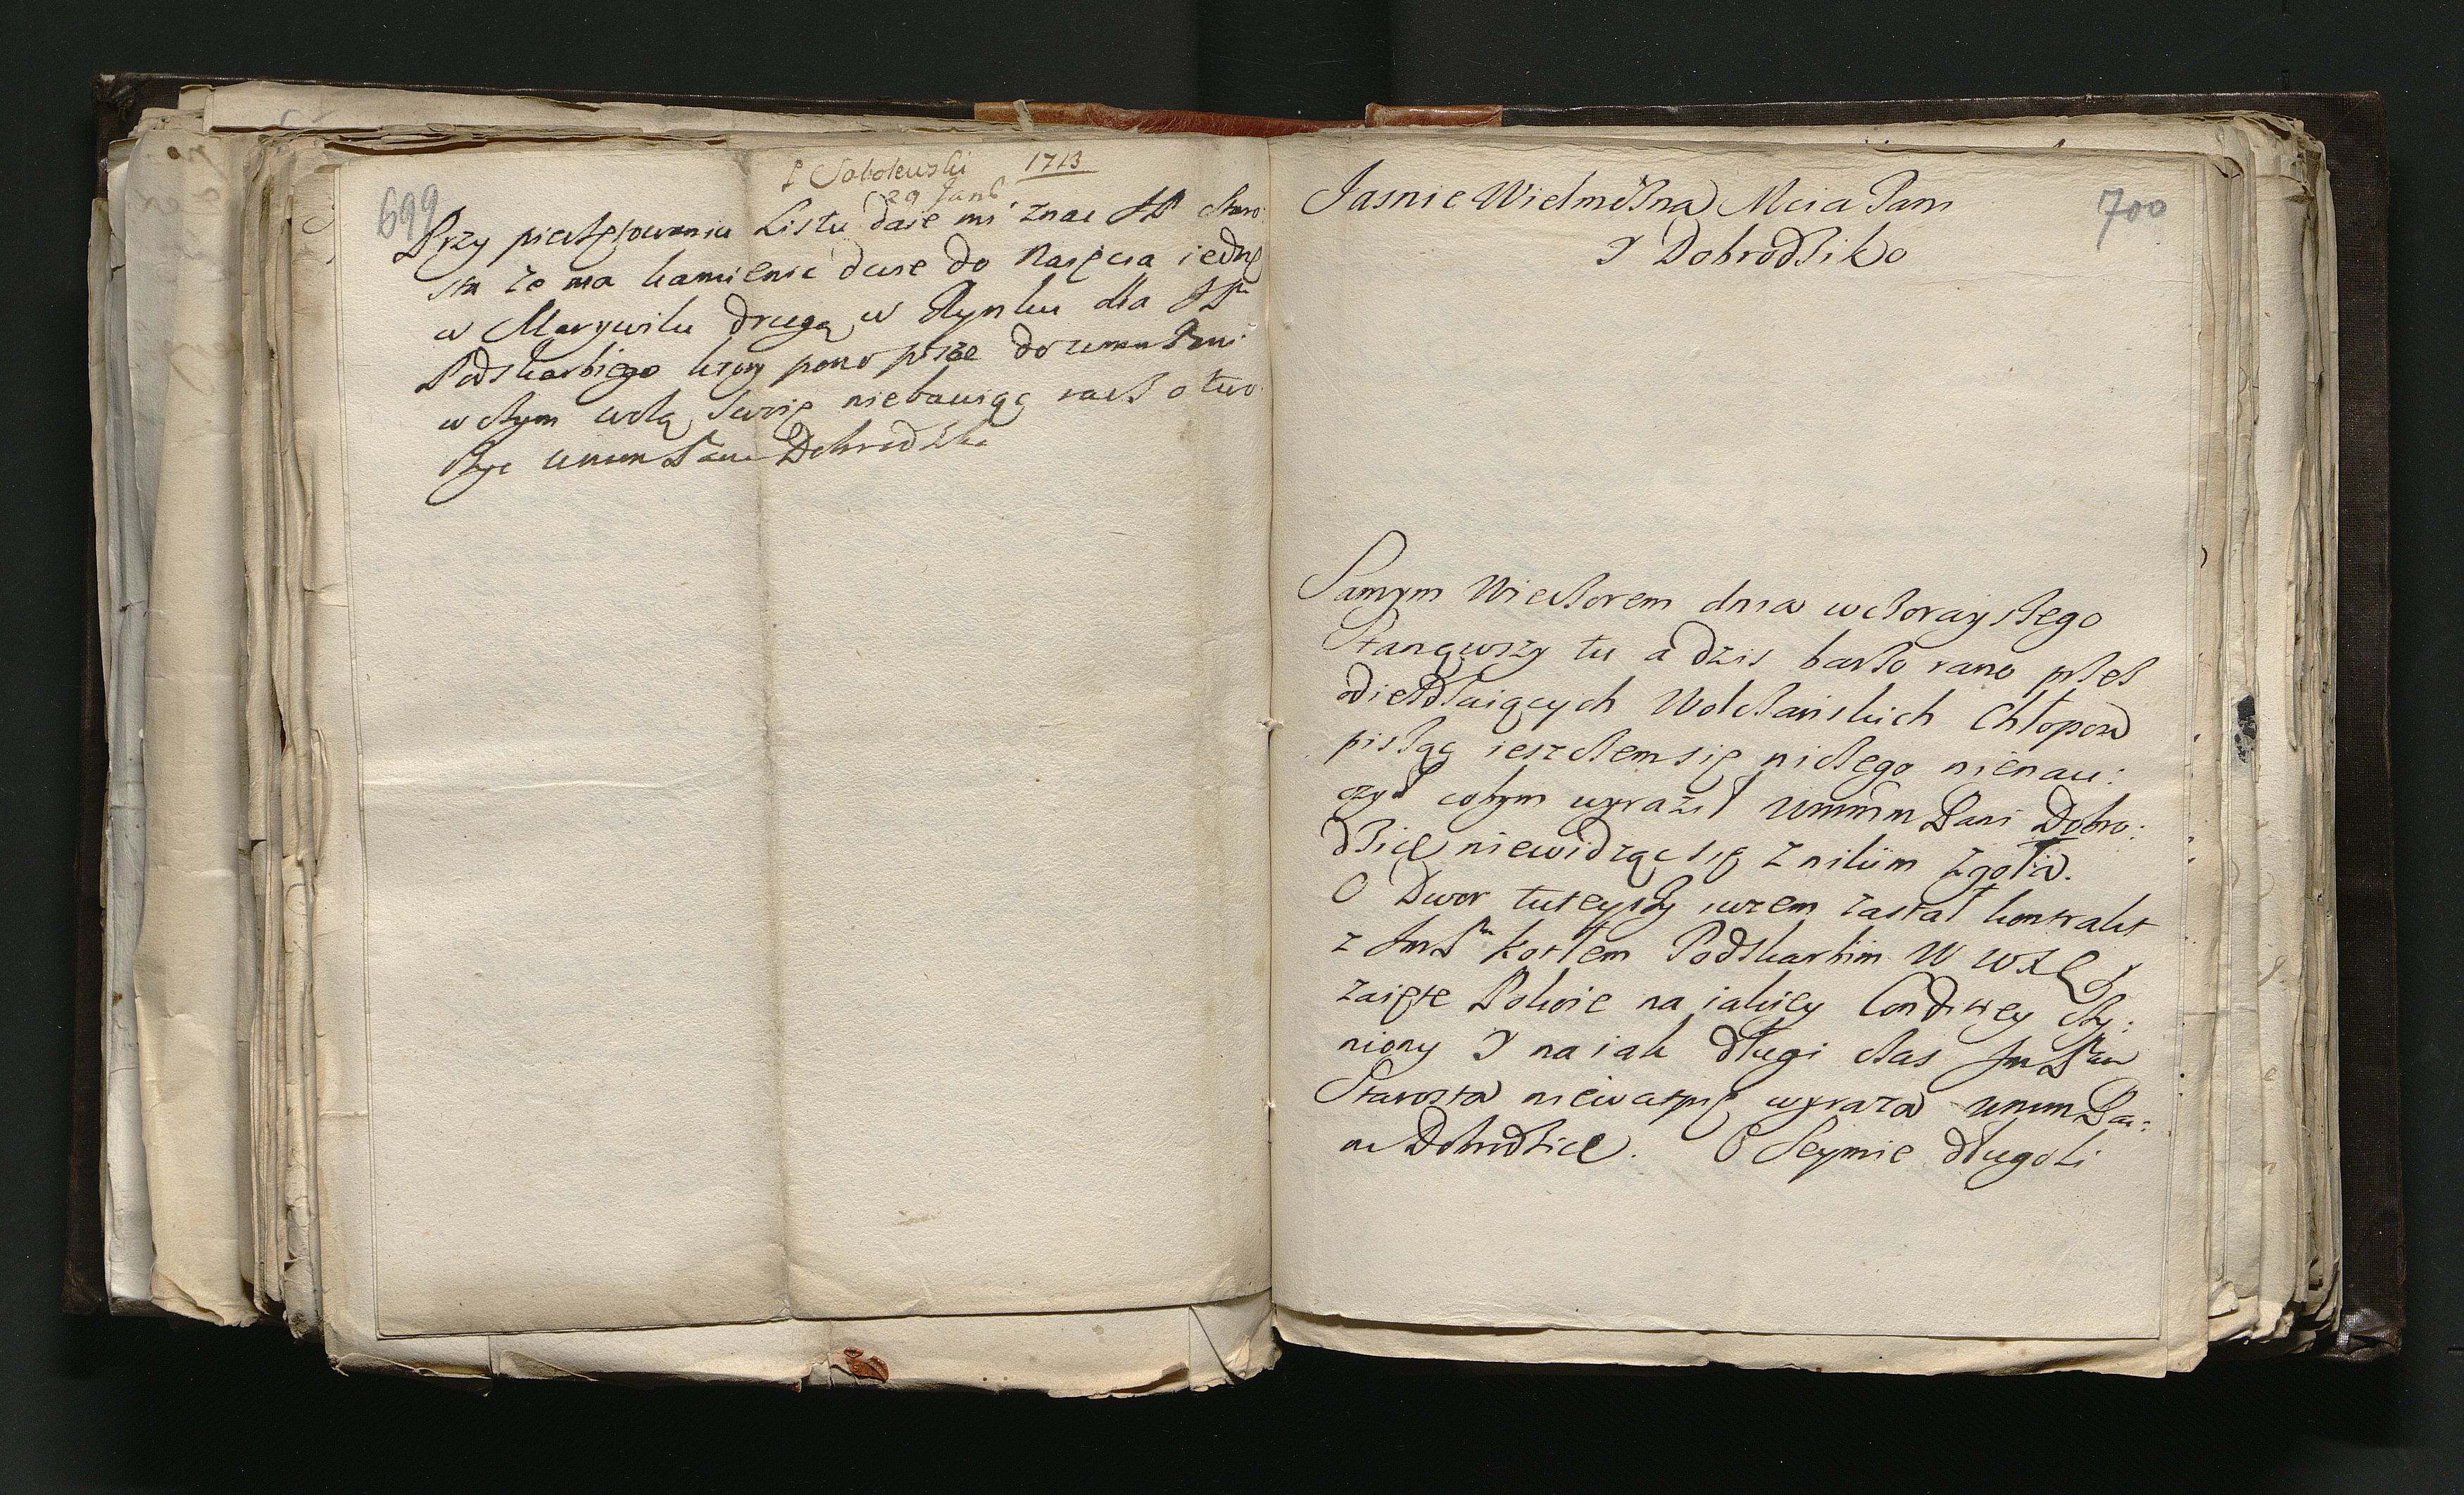 699
P Sobolewski 1713
29 Janu
Przy pieczętowaniu Listu daie mi znac JP Staro:
sta ze ma kamienic dwie do Naięcia iednę
w Marywilu drugą w Rynku dla JP
Podskarbiego ktory pono pisze do
w czym wolą swoię niebawiąc racz otwo:
rzyc WMMPani Dobrodzika
700
Jasnie Wielmożna Mcia Pani
I Dobrodziko
Samym Wieczorem dnia wczorayszego
Stanąwszy tu a dzis barzo rano przez
odiezdzaiących Wolczanskich Chłopow
pisząc ieszczem się niczego nienau:
czył cobym wyraził WMMPani Dobro:
dzice niewidząc się z nikim zgoła.
O Dwor tuteyszy iuzem zastał kontrakt
z JmP Kotłem Podskarbim W WXL
zaięte Pokoie na iakiey Condicyey czy:
niony I na iak długi czas Jm Pan
Starosta niewątpię wyraza WMMPa:
ni Dobrodzice. O Seymie długoli